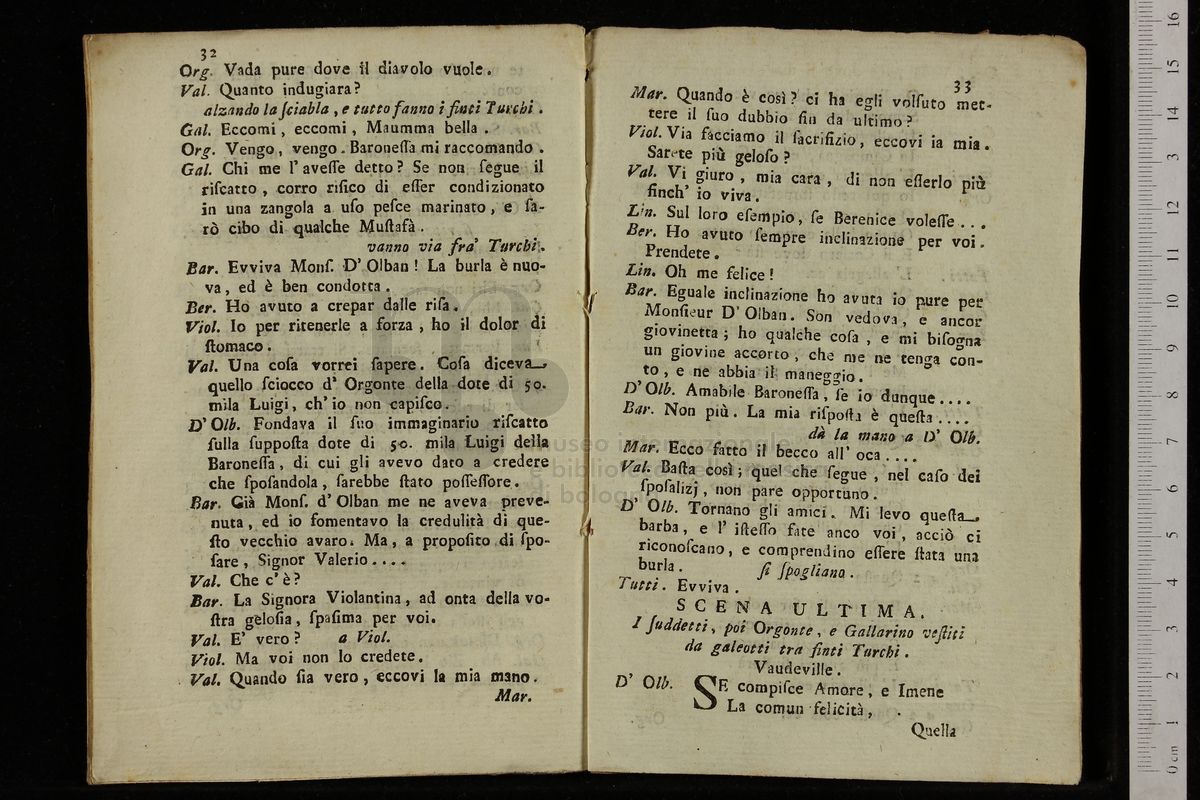 32
Org. Vada pure dove il diavolo vuole.
Val. Quanto indugiara?
alzando la ſciabla, e tutto fanno i finti Turchi.
Gal. Eccomi, eccomi, Maumma bella.
Org. Vengo, vengo. Baroneſſa mi raccomando.
Gal. Chi me l'aveſſe detto? Se non ſegue il
riſcatto, corro riſico di eſſer condizionato
in una zangola a uſo peſce marinato, e ſa-
rò cibo di qualche Muſtafà.
vanno via fra' Turchi.
Bar. Evviva Monſ. D'Olban! La burla è nuo-
va, ed è ben condotta.
Ber. Ho avuto a crepar dalle riſa.
Viol. Io per ritenerle a forza, ho il dolor di
ſtomaco.
Val. Una coſa vorrei ſapere. Coſa diceva
quello ſciocco d'Orgonte della dote di 50.
mila Luigi, ch'io non capiſco.
D'Olb. Fondava il ſuo immaginario riſcatto
ſulla ſuppoſta dote di 50. mila Luigi della
Baroneſſa, di cui gli avevo dato a credere
che ſpoſandola, ſarebbe ſtato poſſeſſore.
Bar. Già Monſ. d'Olban me ne aveva preve-
nuta, ed io fomentavo la credulità di que-
ſto vecchio avaro. Ma, a propoſito di ſpo-
ſare, Signor Valerio....
Val. Che c'è?
Bar. La Signora Violantina, ad onta della vo-
ſtra geloſia, ſpaſima per voi.
Val. E' vero? a Viol.
Viol. Ma voi non lo credete.
Val. Quando ſia vero, eccovi la mia mano.
Mar.
33
Mar. Quando è così? ci ha egli volſuto met-
tere il ſuo dubbio fin da ultimo?
Viol. Via facciamo il ſacrifizio, eccovi la mia.
Sarete più geloſo?
Val. Vi giuro, mia cara, di non eſſerlo più
finch' io viva.
Lin. Sul loro eſempio, ſe Berenice voleſſe...
Ber. Ho avuto ſempre inclinazione per voi.
Prendete.
Lin. Oh me felice!
Bar. Eguale inclinazione ho avuta io pure per
Monſieur D'Olban. Son vedova, e ancor
giovinetta; ho qualche coſa, e mi biſogna
un giovine accorto, che me ne tenga con-
to, e ne abbia il maneggio.
D'Olb. Amabile Baroneſſa, ſe io dunque....
Bar. Non più. La mia riſpoſta è queſta....
dà la mano a D' Olb.
Mar. Ecco fatto il becco all' oca....
Val. Baſta così; quel che ſegue, nel caſo dei
ſpoſalizj, non pare opportuno.
D' Olb. Tornano gli amici. Mi levo queſta
barba, e l' iſteſſo fate anco voi, acciò ci
riconoſcano, e comprendino eſſere ſtata una
burla. ſi ſpogliano.
Tutti. Evviva.
SCENA ULTIMA.
I ſuddetti, poi Orgonte, e Gallarino veſtiti
da galeotti tra finti Turchi.
Vaudeville.
D' Olb. SE compiſce Amore, e Imene
La comun felicità,
Quella